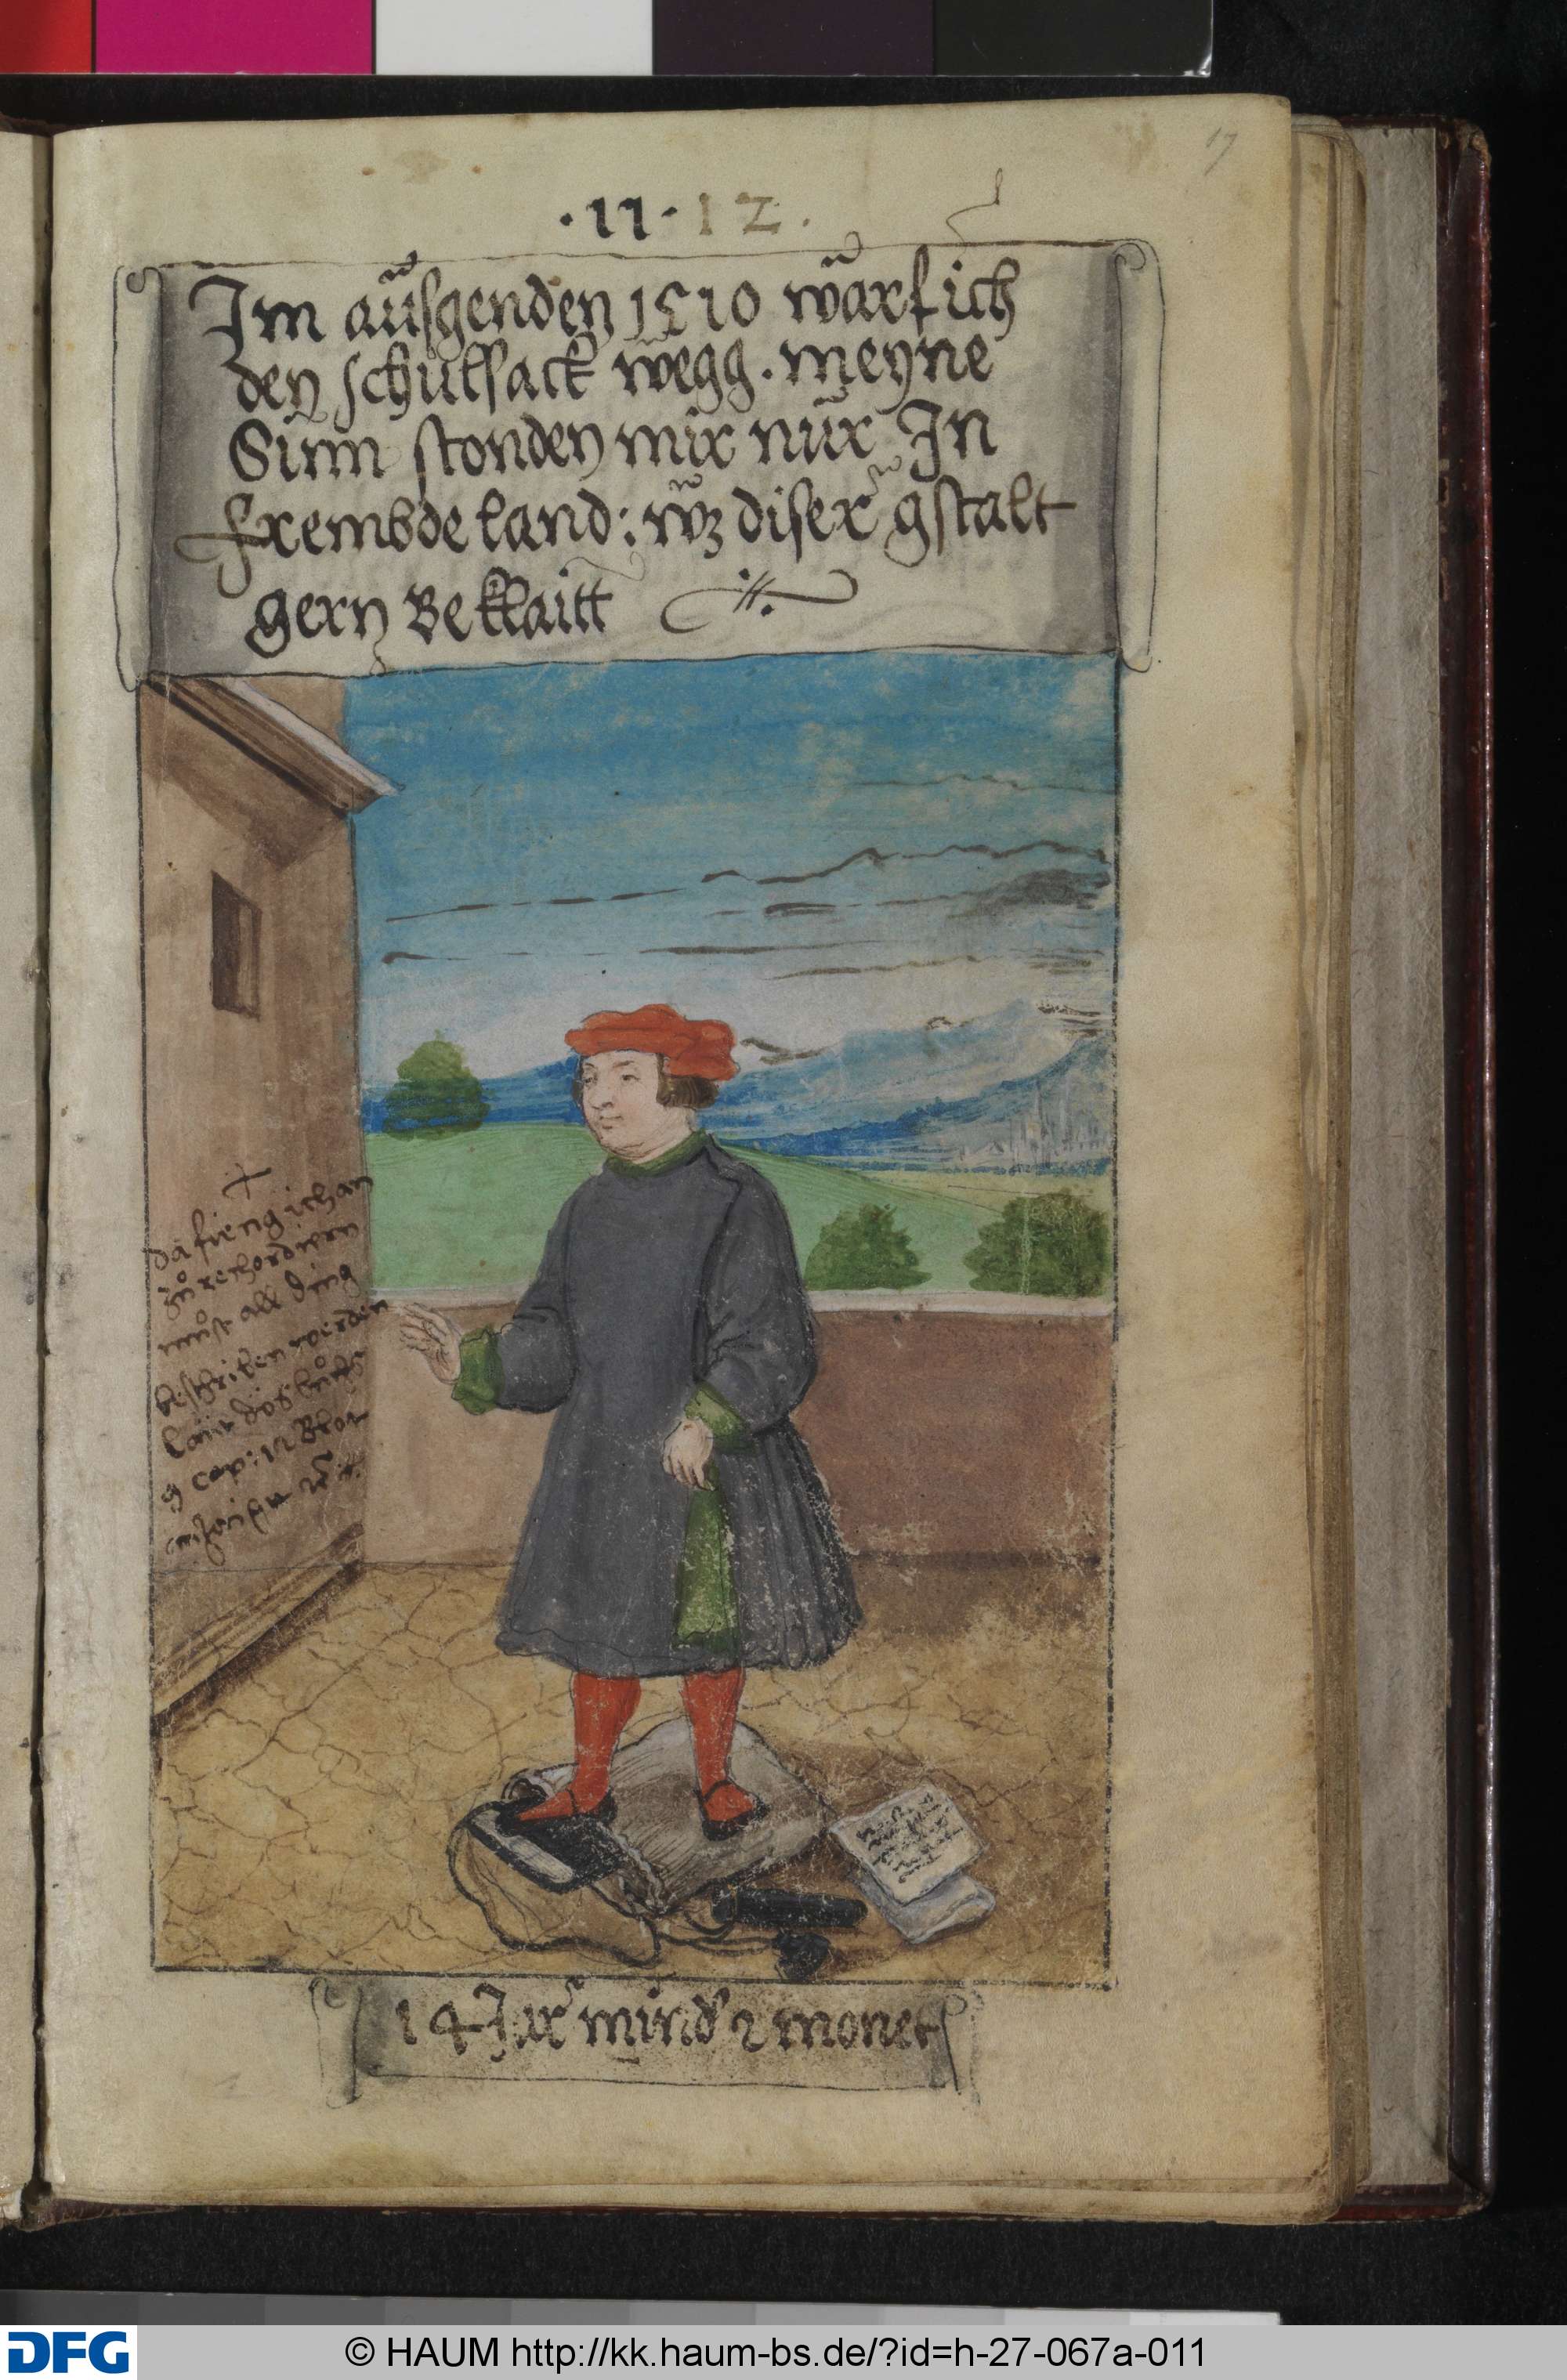 17
·11·12.
Im ausgenden 1510 warf ich
den schulsack wegg. meyne
Sinn stonden mir nur In
frembde land: wz diser gstalt
gern Beklaitt
+
da fieng ich an
zů rechordiern
můst all ding
beschriben werden
laut dös bůchs
cap: 12 Blat
14 Jar mind 2 monet
DFG
© HAUM http://kk.haum-bs.de/?id=h-27-067a-011